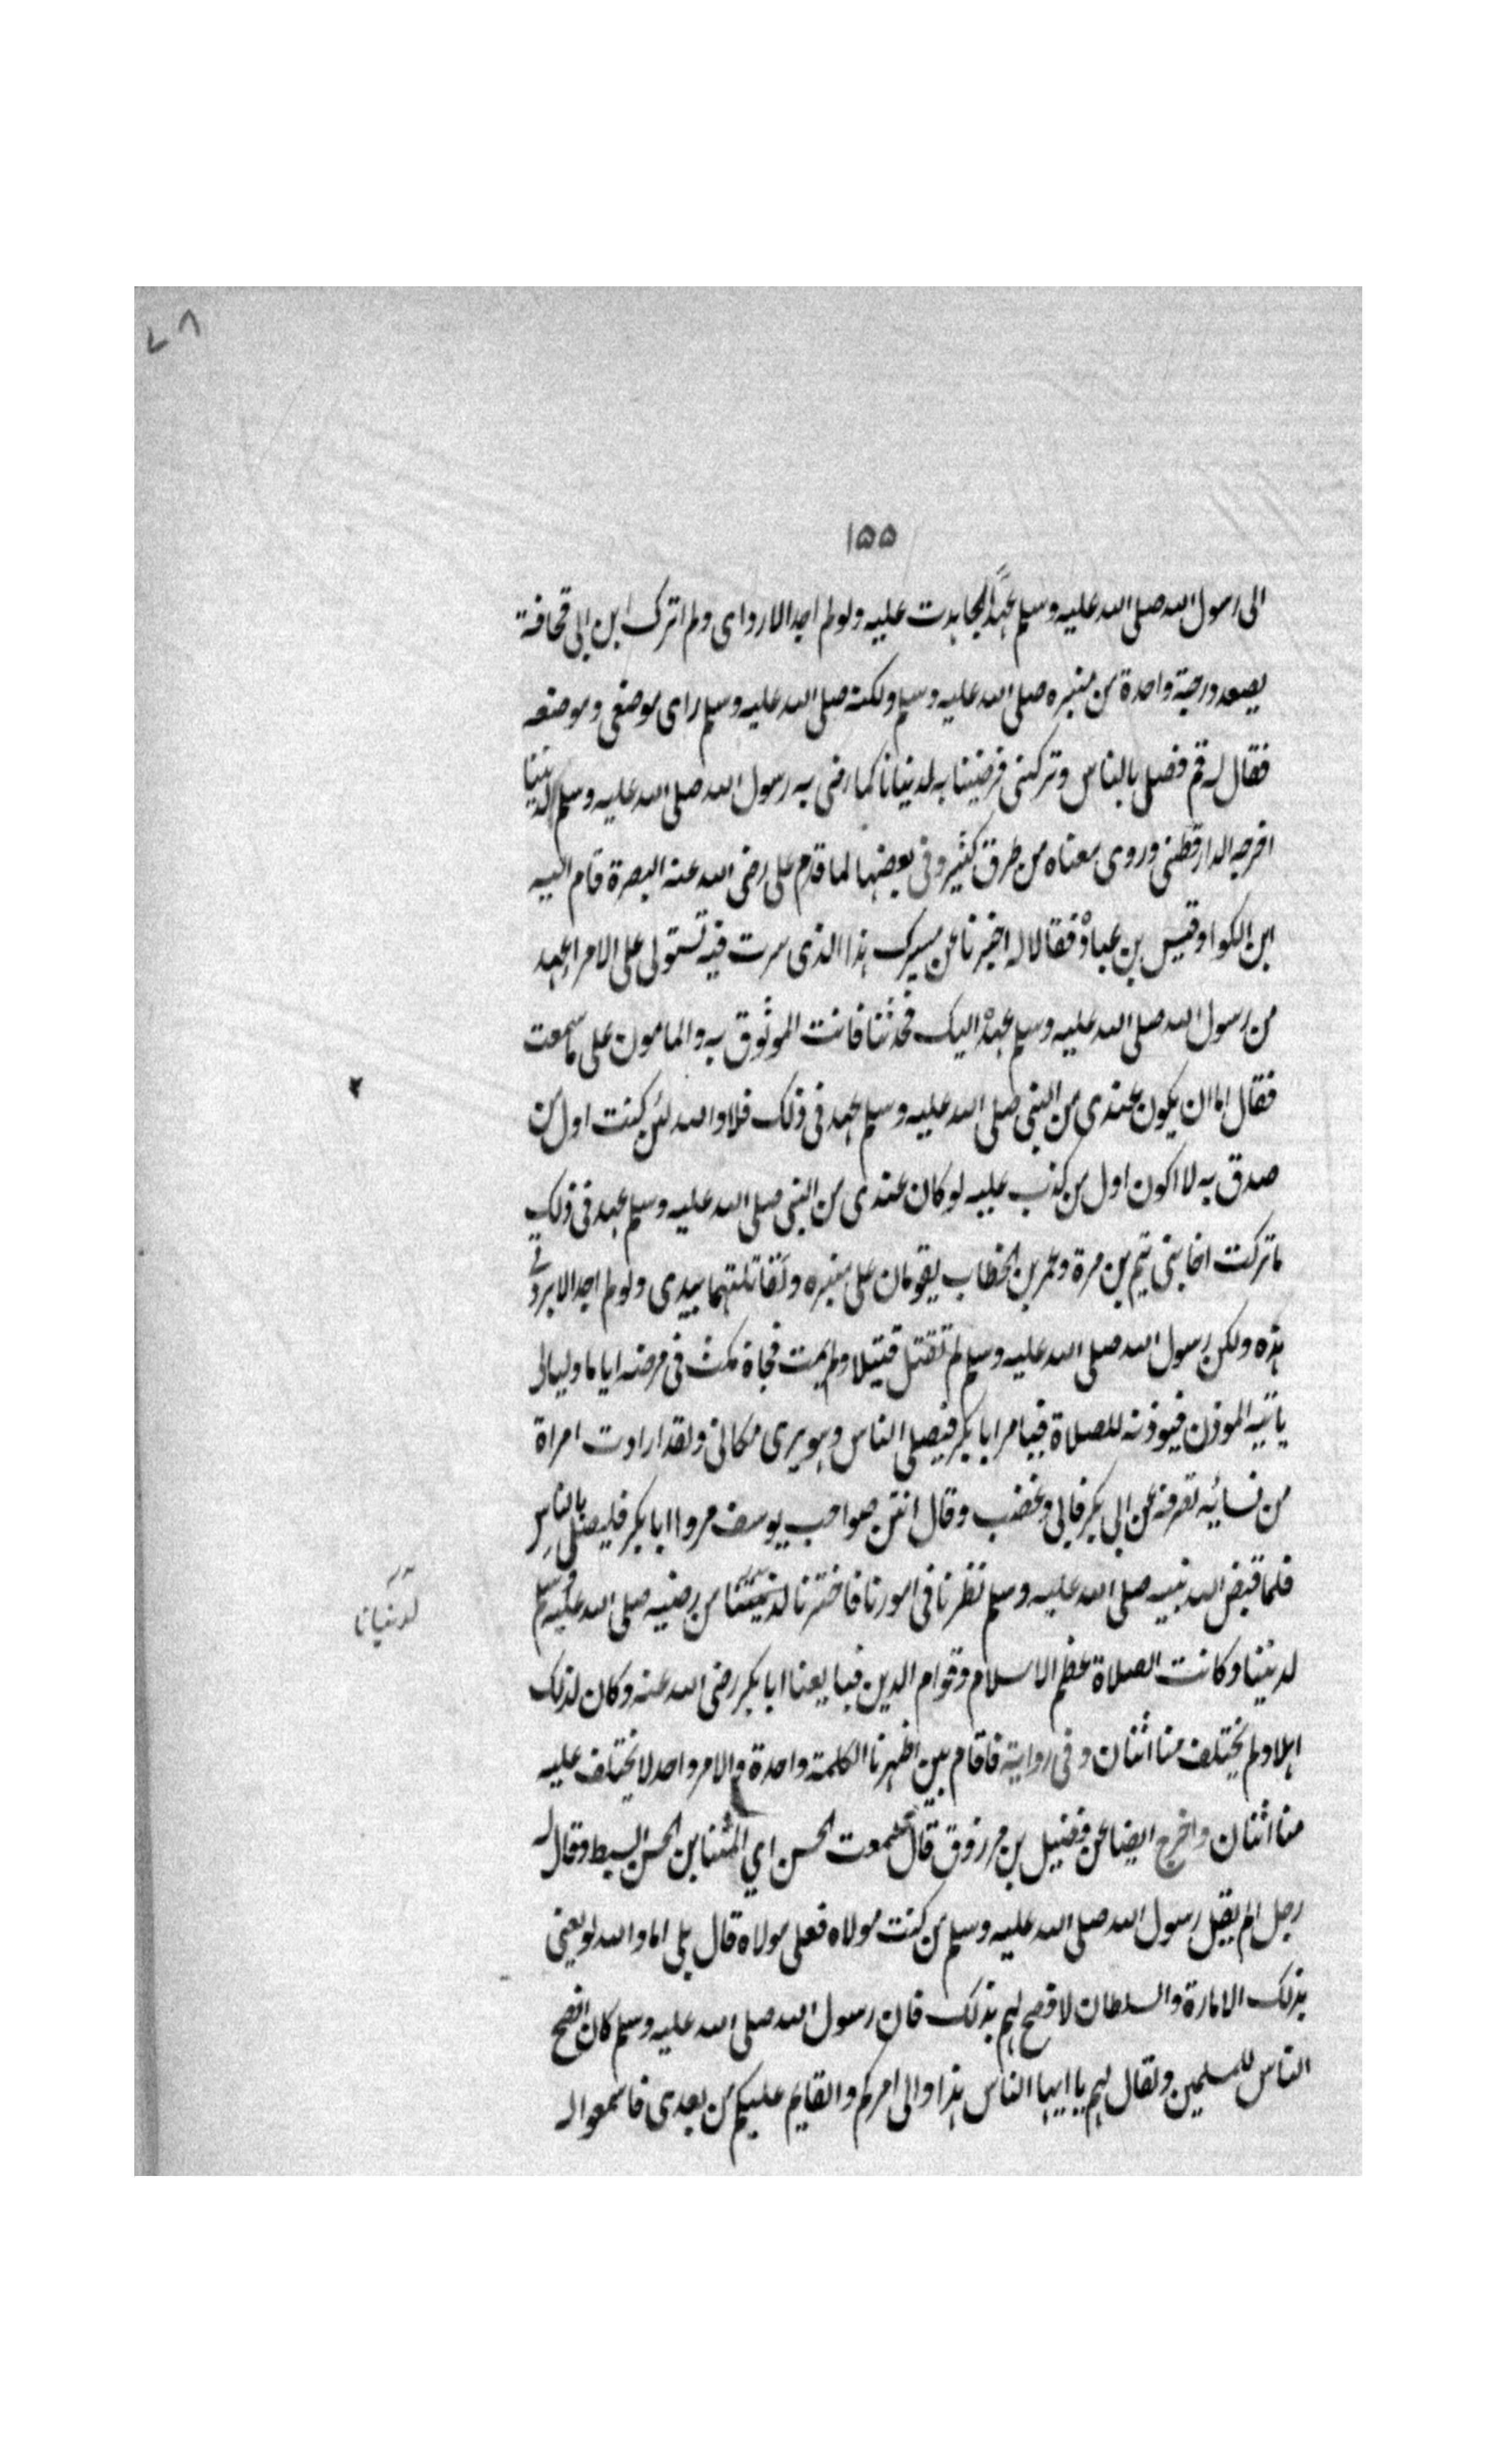 ٧٨
١٥٥
الى رسول الله صلى الله عليه وسلم عهدًا لجاهدت عليه ولو لم اجد الا رداى ولم اترك ابن ابى قحافة
يصعد درجة واحدة من منبره صلى الله عليه وسلم ولكنه صلى الله عليه وسلم راى موضعى وموضعه
فقال له قم فصل بالناس وتركنى فرضينا به لدنيانا كما رضى به رسول الله صلى الله عليه وسلم لديننا
اخرجه الدارقطنى وروى معناه من طرق كثيرة وفى بعضها لما قدم على رضى الله عنه البصرة قام اليه
ابن الكوا وقيس بن عباد فقالا له اخبرنا عن مسيرك هذا الذى سرت فيه تستولى على الامر اعهد
من رسول الله صلى الله عليه وسلم عهده اليك فحدثنا فانت الموثوق به والمامون على ما سمعت
فقال اما ان يكون عندى من النبى صلى الله عليه وسلم عهد فى ذلك فلا والله لئن كنت اول من
صدق به لا اكون اول من كذب عليه لو كان عندى من النبى صلى الله عليه وسلم عهد فى ذلك
ما تركت اخا بنى تيم بن مرة وعمر بن الخطاب يقومان على منبره ولقاتلتهما بيدى ولو لم اجد الا بردتى
هذه ولكن رسول الله صلى الله عليه وسلم لم تقتل قتيلا ولم يمت فجاة مكث فى مرضه اياما وليالى
ياتيه الموذن فيوذنه للصلاة فيامر ابا بكر فيصلى الناس وهو يرى مكانى ولقد ارادت امراة
من نسائيه تصرفه عن ابى بكر فابى وغضب وقال انتن صواحب يوسف مروا ابا بكر فليصلى بالناس
فلما قبض الله نبيه صلى الله عليه وسلم نظرنا فى امورنا فاخترنا من رضيه صلى الله عليه وسلم
لدنيانا
لديننا وكانت الصلاة عظم الاسلام وقوام الدين فبايعنا ابا بكر رضى الله عنه وكان لذلك
اهلا ولم يختلف منا اثنان وفى رواية فاقام بين اظهرنا الكلمة واحدة والامر واحد لا يختلف عليه
منا اثنان واخرج ايضا عن فضيل بن مرزوق قال سمعت الحسن اي المثنا بن الحسن السبط وقال له
رجل الم يقل رسول الله صلى الله عليه وسلم من كنت مولاه فعلى مولاه قال بلى اما والله لو يعنى
بذلك الامارة والسلطان لافصح لهم بذلك فان رسول الله صلى الله عليه وسلم كان افصح
الناس للمسلمين ولقال لهم يا ايها الناس هذا والى امركم والقايم عليكم من بعدى فاسمعوا له